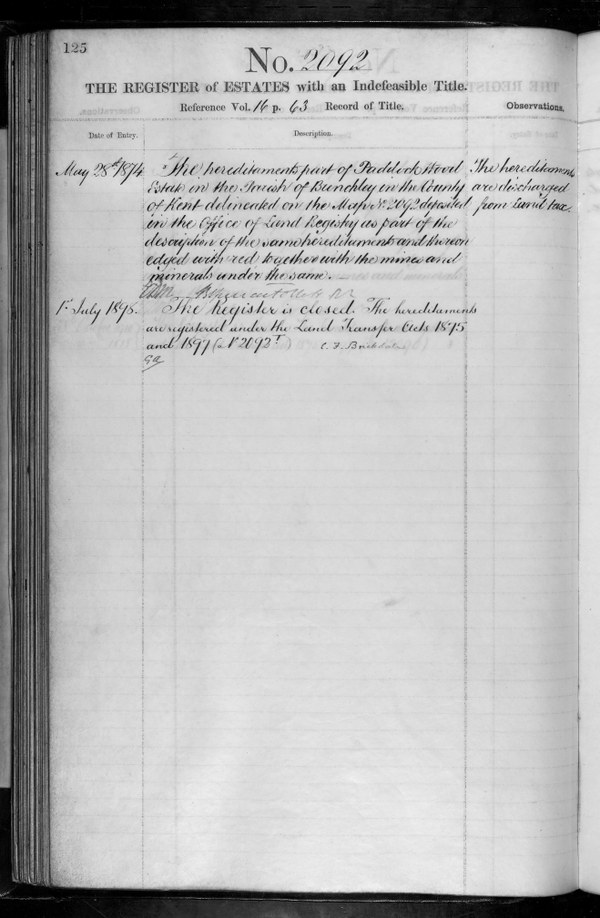 125
No. 2092
THE REGISTER of ESTATES with an Indefeasible Title.
Reference Vol. 16 p. 63 Record of Title.
Observations.
Date of Entry.
Description.
May 28th 1874
The hereditaments part of Paddock Wood
Estate in the Parish of Brenchley in the County
of Kent delineated on the Map No. 2092 deposited
in the Office of Land Registry as part of the
description of the same hereditaments and thereon
edged with red together with the mines and
minerals under the same.
The hereditaments
are discharged
from Land tax.
1st July 1898.
The Register is closed. The hereditaments
are registered under the Land Transfer Acts 1875
and 1897 (as No 2092
C. F. Brickdale